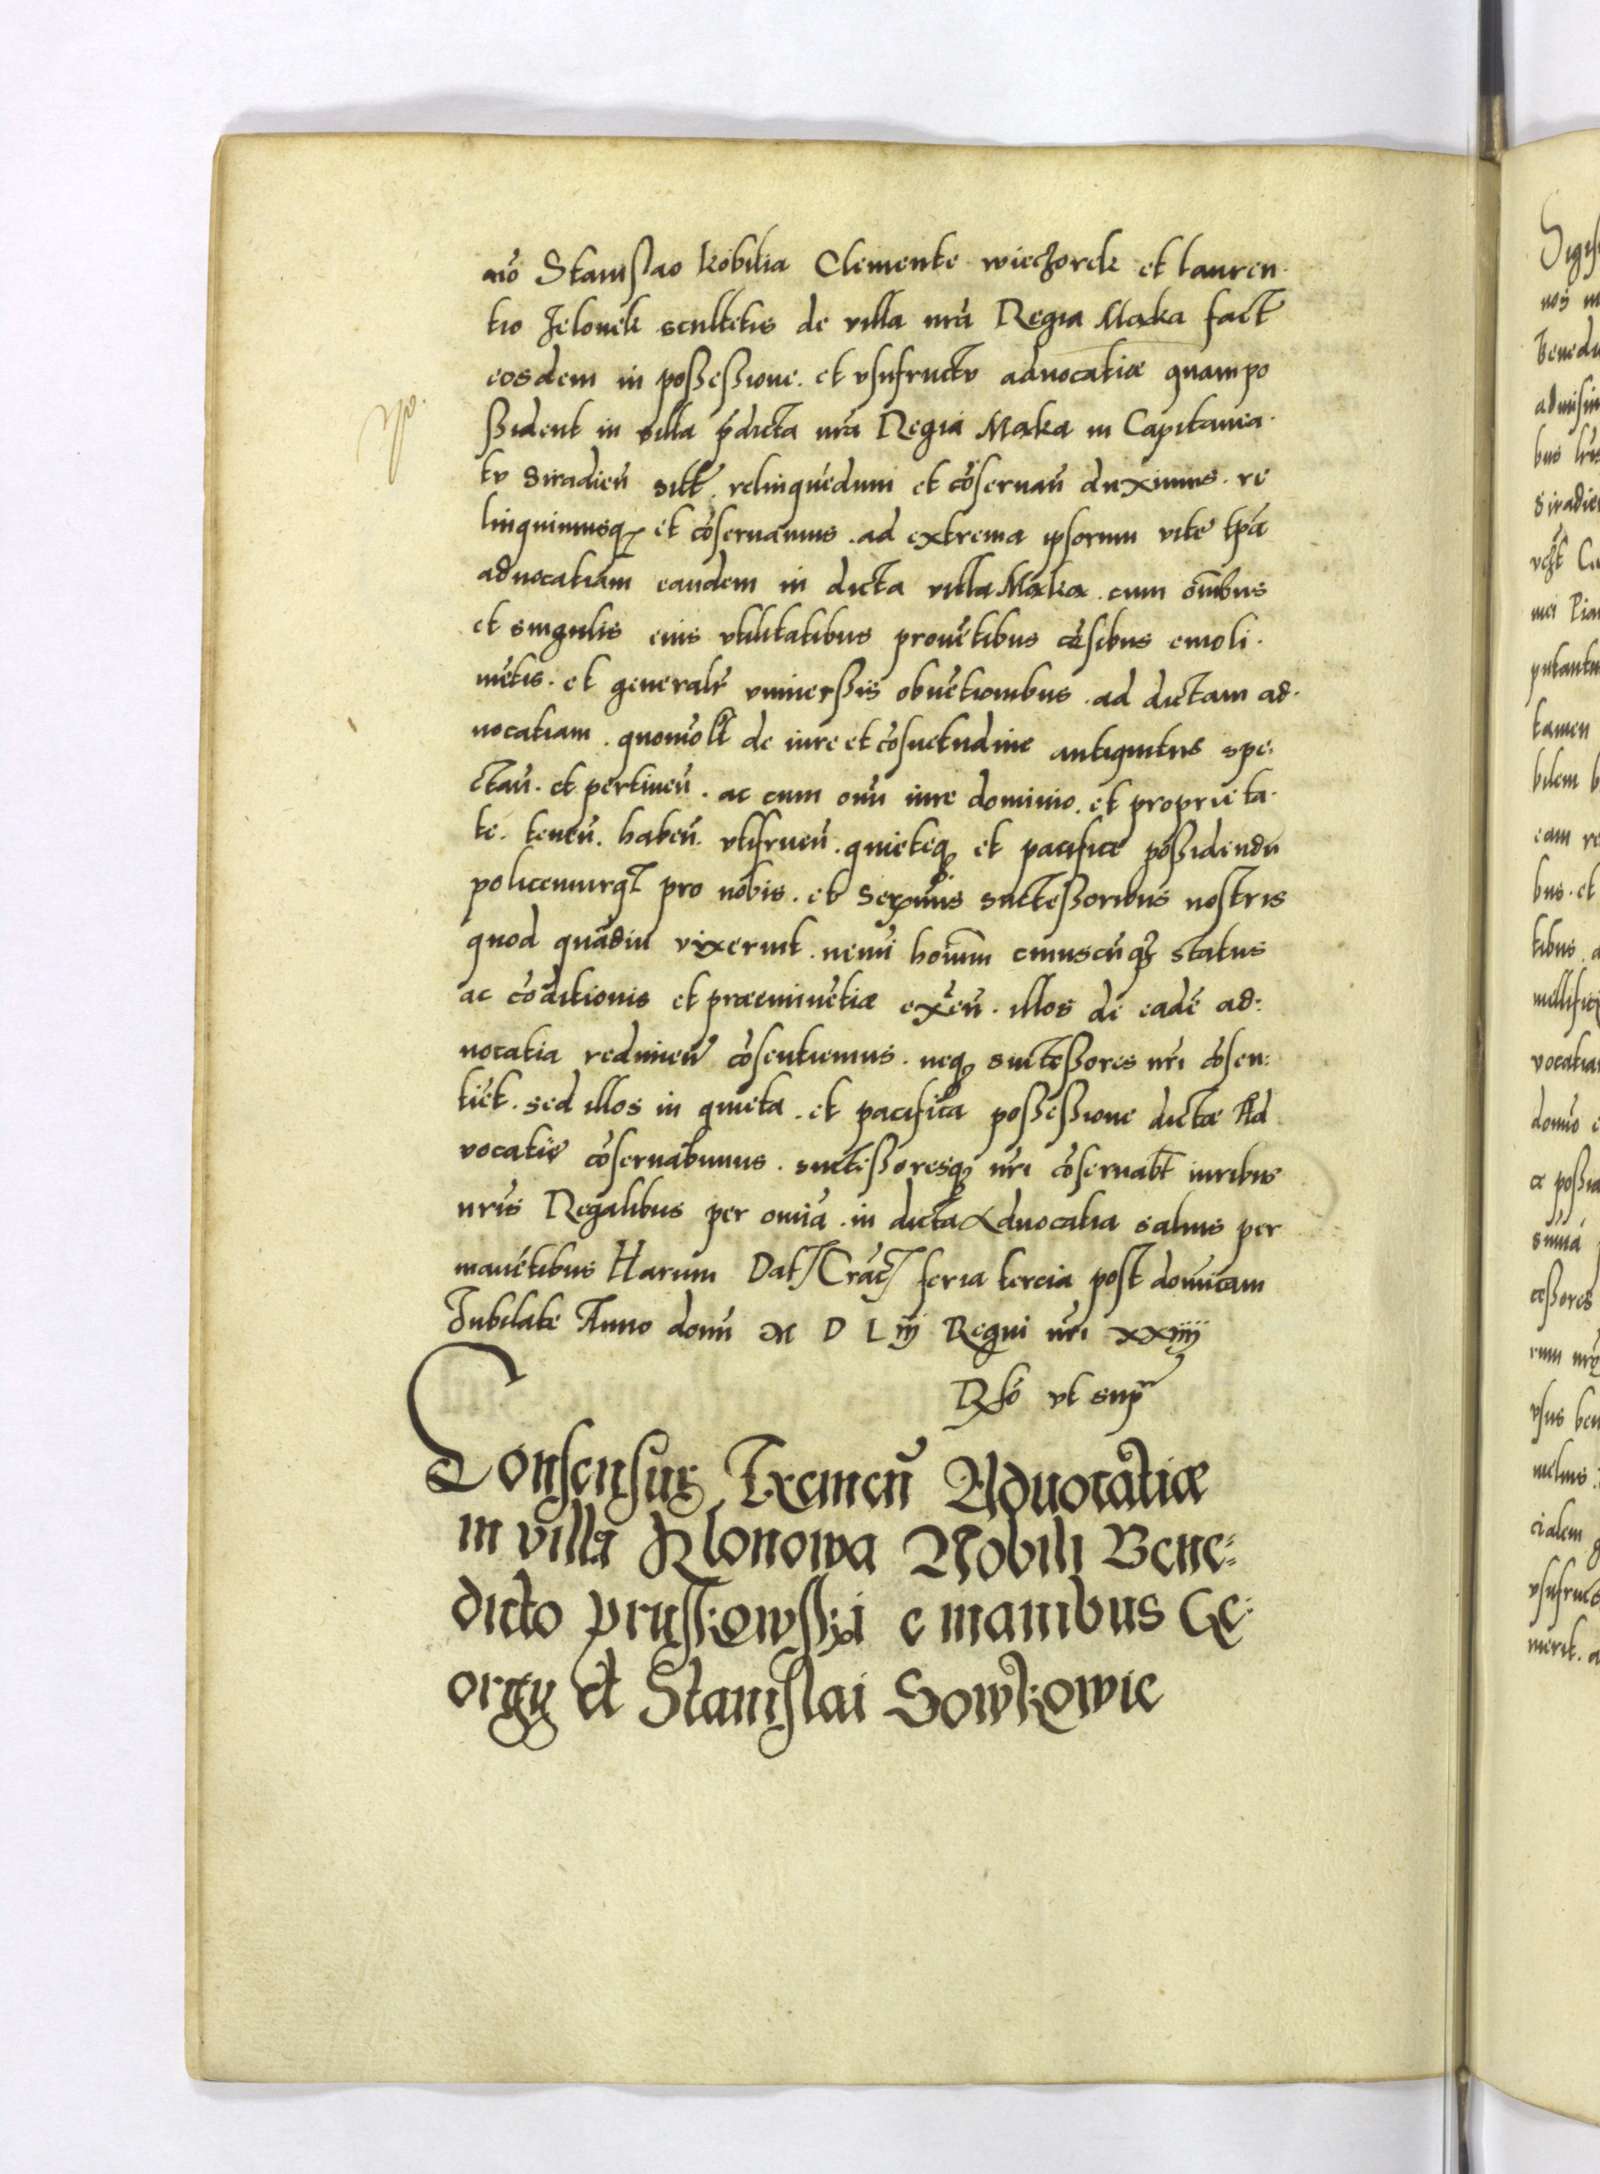 nō Stanislao kobilia Clemente wiechorek et lauren
tio Jelonek scultetis de villa nrā Regia Maka fact
eosdem in possessione . et vsufructu aduocatiæ quam po
ssident in villa p̄dicta nrā Regia Maka in Capitanea
tu Siradieñ sitt̄ . relinquēdum et cōseruañ duximus . re
linquimusq; et cōseruamus . ad extrema ipsorum vite tp̄a
aduocatiam eandem in dicta villa Maka . cum om̄ibus
et singulis eius vtilitatibus prouētibus cēsibus emoli
mētis . et generalr̄ vniuerssis obuētionibus . ad dictam ad
uocatiam . quomōlt de iure et cōsuetudine antiquitus spe:
ctañ . et pertineñ . ac cum om̄i iure dominio . et proprieta
te . teneñ . habeñ . vtifrueñ . quieteq; et pacifice possidendū
policemurq̄ pro nobis . et Serēmis successoribus nostris
quod quādiu vixerint . nemī hoīum cuiuscūq; status
ac cōditionis et præeminētiæ exn̄eñ . illos de eadē ad:
uocatia redimeñ cōsentiemus . neq; successores nr̄i cōsen:
tiēt . sed illos in quieta . et pacifica possessione dictæ Ad
vocatie cōseruabimus . successoresq; nr̄i cōseruabt̄ iuribus
nr̄is Regalibus per omīa . in dicta Aduocatia saluis per
manētibus Harum Dat Crac feria tercia post domīcam
Jubilate Anno domī M D L iij Regni nr̄i xxiiij
Rlō vt sup̄
Consensus Exemeñ Aduocatiæ
in villa Klonowa Nobili Bene:
dicto pruskowski e manibus Ge:
orgij et Stanislai Sowkowic